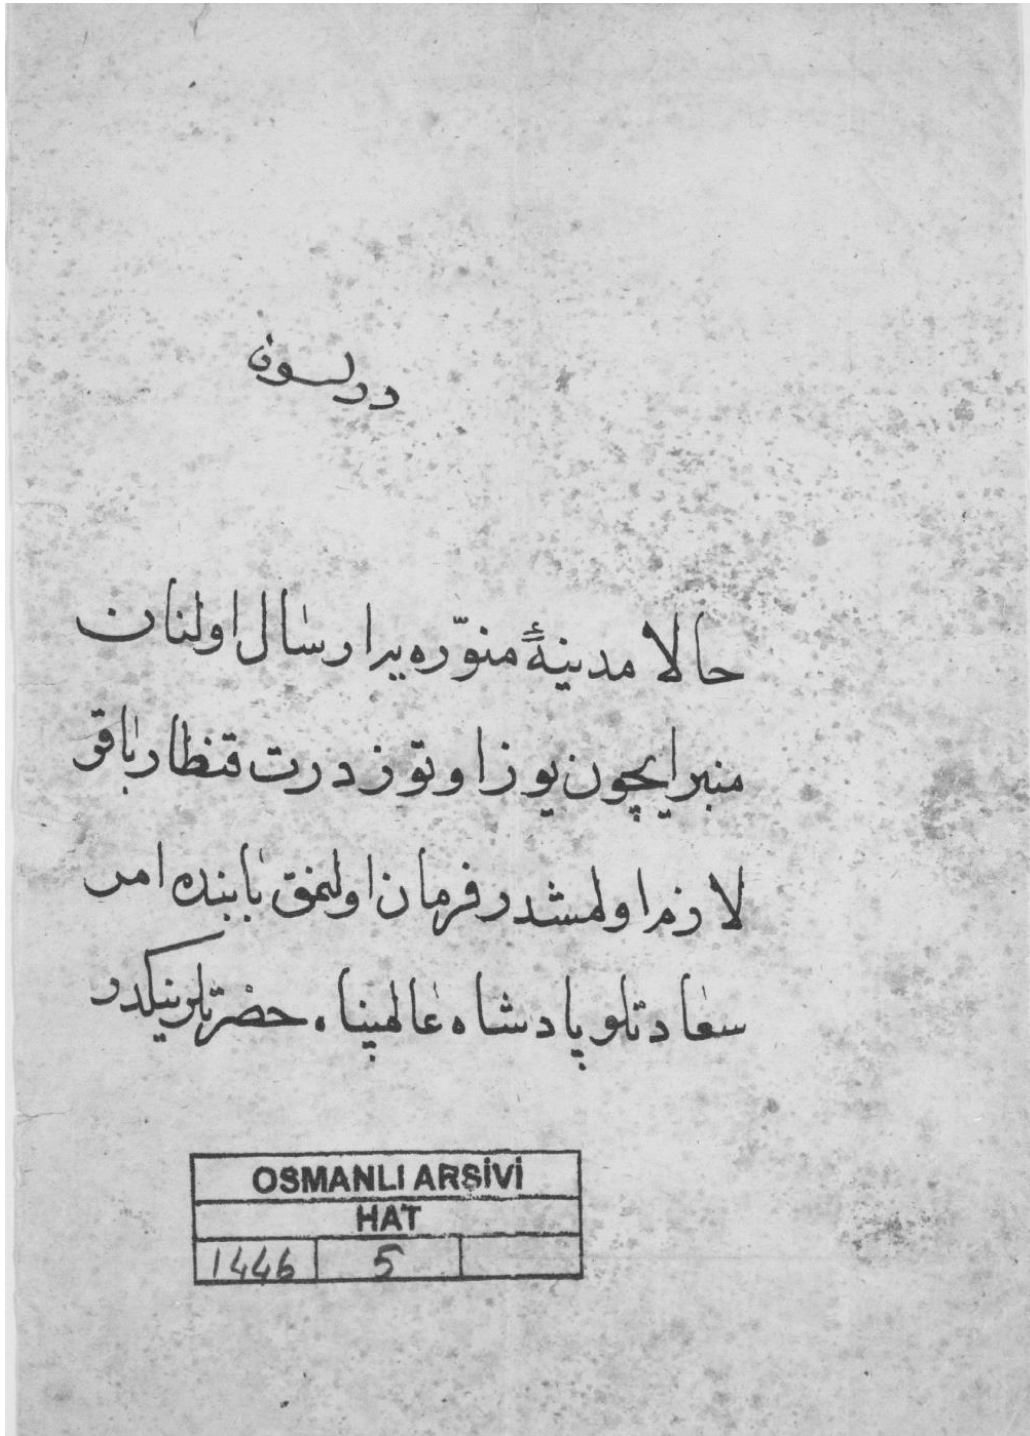 ویرلسون
حالا مدینهٔ منوّره یه ارسال اولنان
منبر ایچون یوز اوتوز درت قنطار باقر
لازم اولمشدر فرمان اولنمق بابنده امر
سعادتلو پادشاه عالمپناه حضرتلرینکدر
OSMANLI ARŞİVİ
HAT
1446 5